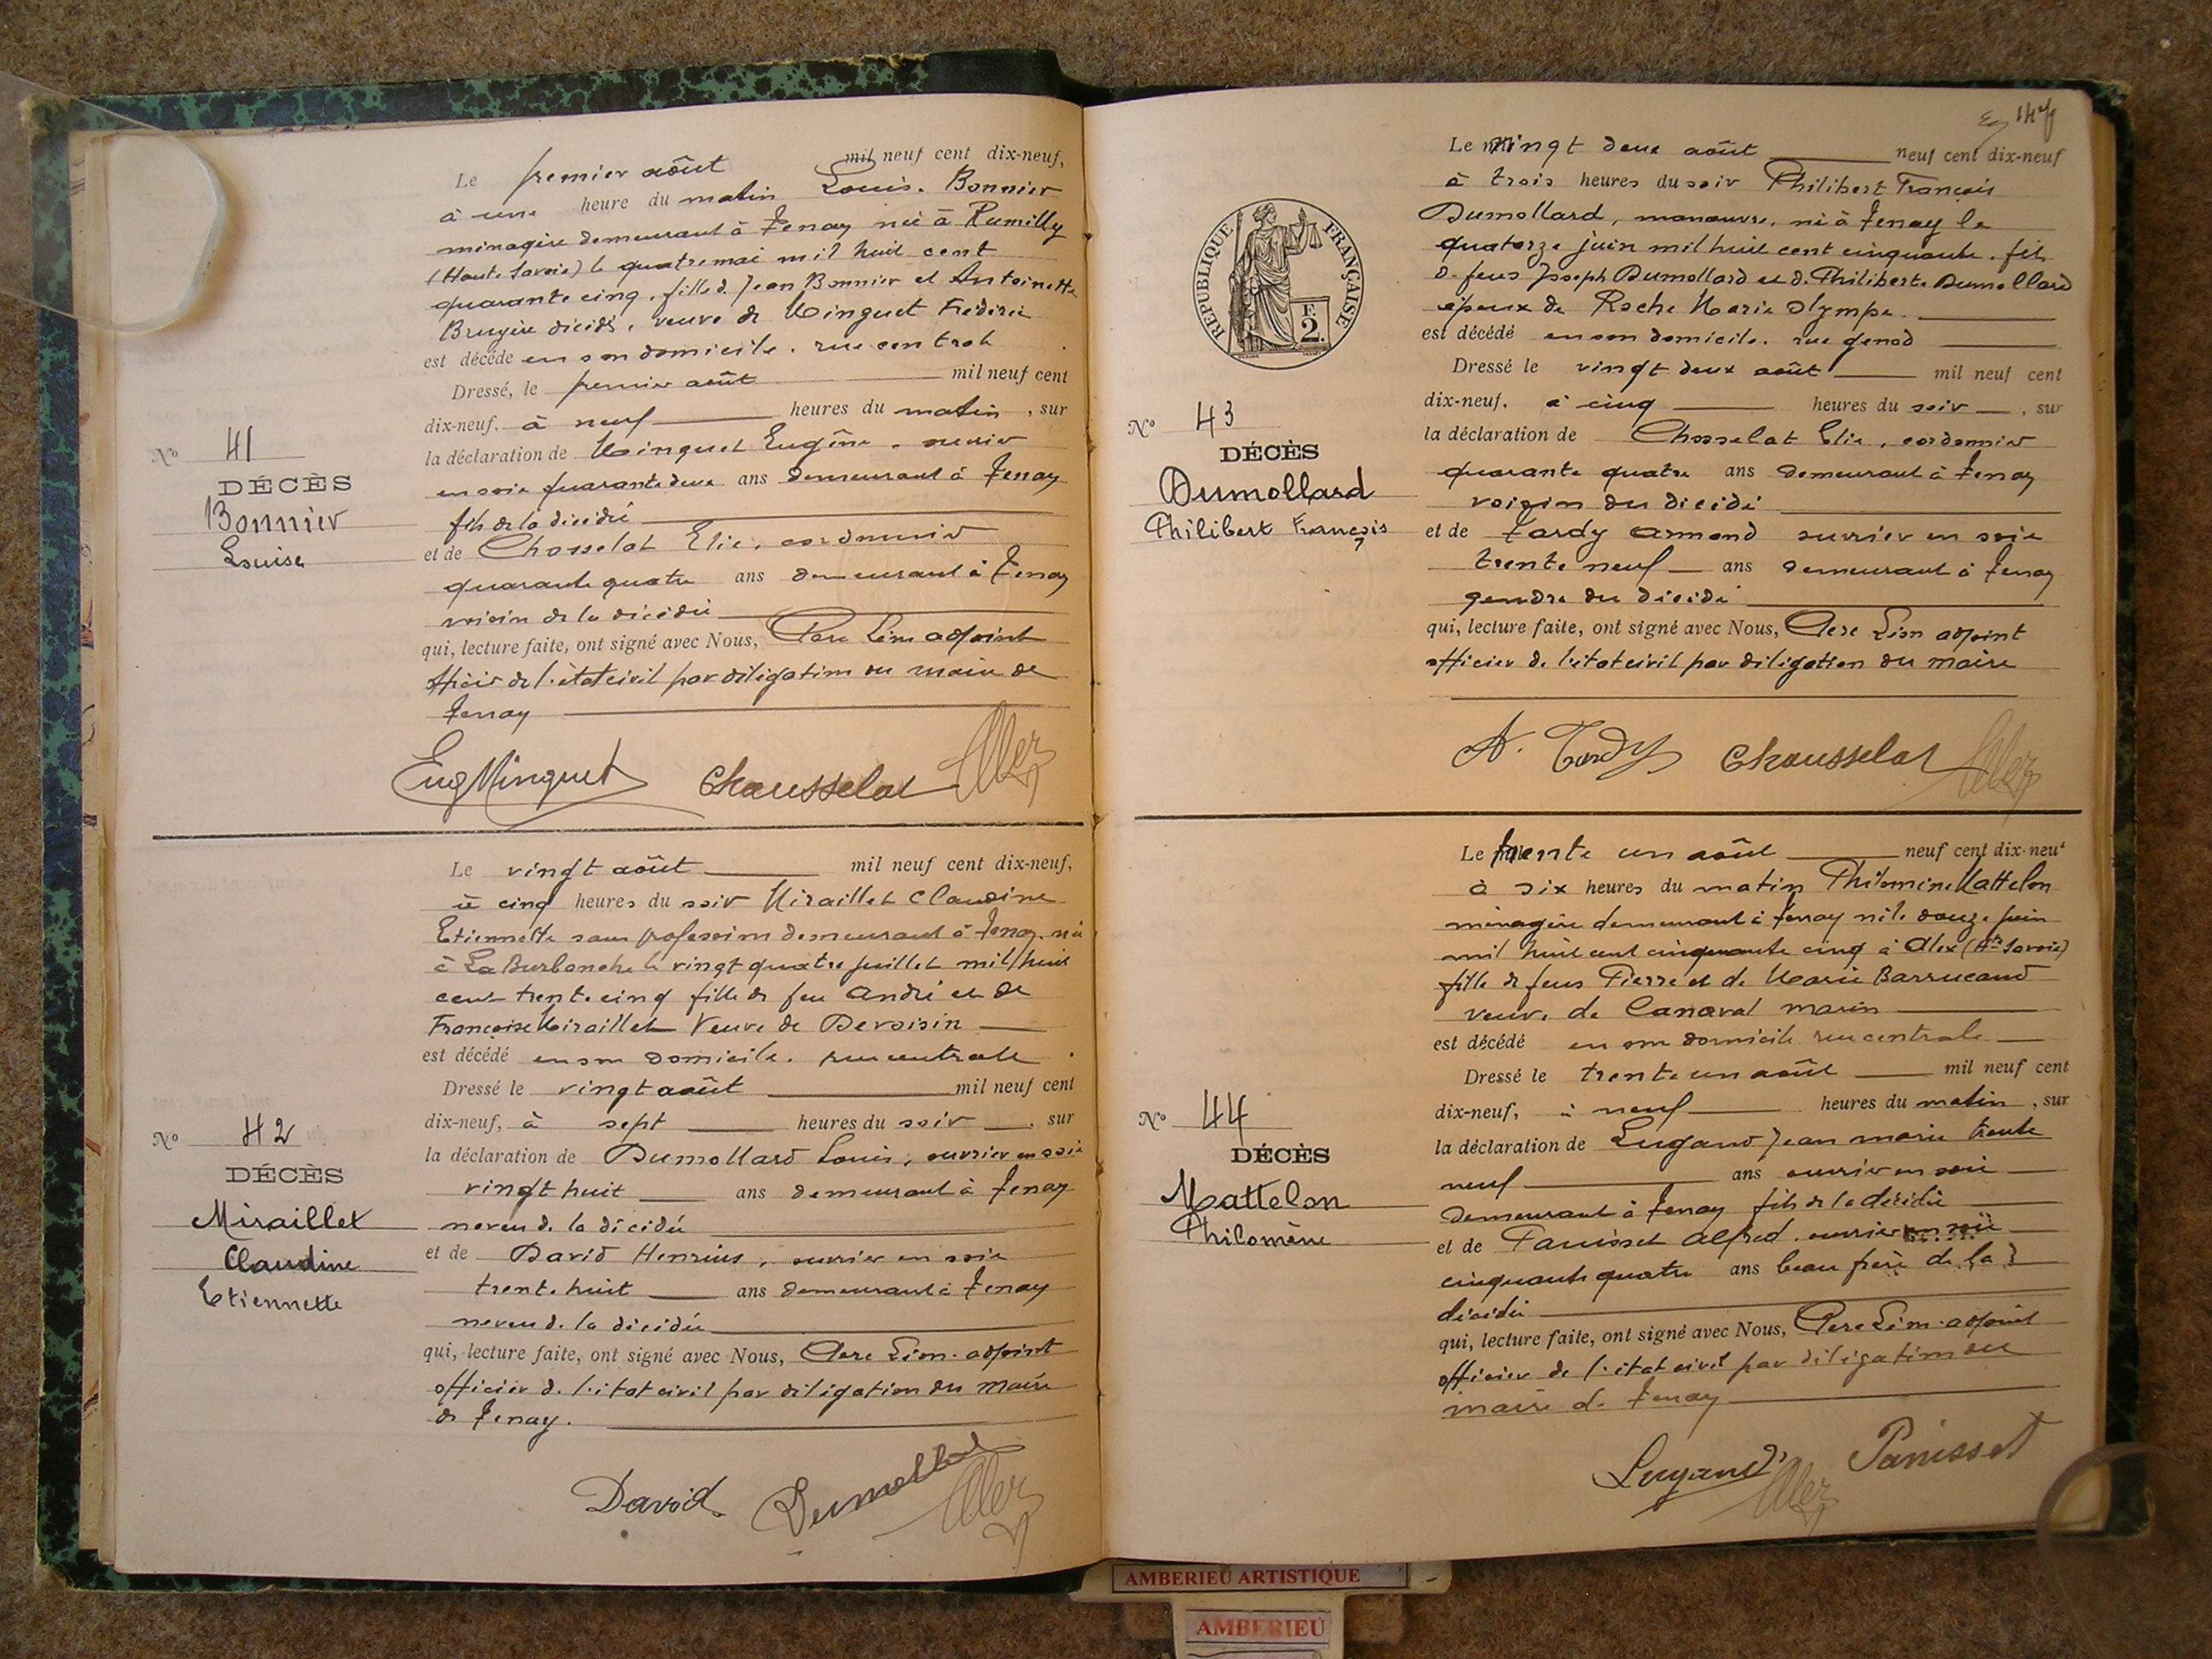 Le premier août mil neuf cent dix-neuf,
à une heure du matin Louise Bonnier
ménagère demeurant à Tenay née à Rumilly
(Haute Savoie) le quatre mai mil huit cent
quarante cinq, fille d. Jean Bonnier et Antoinette
Bruyère décédés, veuve de Minguet Frédéric
est décédé en son domicile. rue central
Dressé, le premier août mil neuf cent
dix-neuf, à neuf heures du matin, sur
la déclaration de Minguet Eugène, ouvrier
en soie quarante deux ans demeurant à Tenay
fils de la décédée
et de Chosselat Elie, cordonnier
quarante quatre ans demeurant à Tenay
voisin de la décédée
qui, lecture faite, ont signé avec Nous, Léon adjoint
officier de l'état civil par délégation du maire de
Tenay
N° 41
DÉCÈS
Bonnier
Louise
Eug Minguet Chausselat
Le vingt août mil neuf cent dix-neuf,
à cinq heures du soir Miraillet Claudine
Etiennette sans profession demeurant à Tenay. née
à La Burbanche le vingt quatre juillet mil huit
cent trente cinq fille de feu André et de
Françoise Miraillet Veuve de Devoisin
est décédé en son domicile. rue centrale.
Dressé le vingt août mil neuf cent
dix-neuf, à sept heures du soir, sur
la déclaration de Dumollard Louis, ouvrier en soie
vingt huit ans demeurant à Tenay
neveu d. la décédée
et de David Henrius, ouvrier en soie
trente huit ans demeurant à Tenay
neveu d. la décédée
qui, lecture faite, ont signé avec Nous, Léon. adjoint
officier d. l'état civil par délégation du maire
de Tenay.
N° 42
DÉCÈS
Miraillet
Claudine
Etiennette
David Dumollard
147
Le vingt deux août neuf cent dix-neuf
à trois heures du soir Philibert François
Dumollard, manœuvre, né à Tenay le
quatorze juin mil huit cent cinquante. fils
d. feus Joseph Dumollard et d. Philiberte Dumollard
époux de Roche Marie Olympe.
est décédé en son domicile. rue genod
Dressé le vingt deux août mil neuf cent
dix-neuf, à cinq heures du soir, sur
la déclaration de Chosselat Elie, cordonnier
quarante quatre ans demeurant à Tenay
voisin du décédé
et de Tardy Armand ouvrier en soie
trente neuf ans demeurant à Tenay
gendre du décédé
qui, lecture faite, ont signé avec Nous, Léon adjoint
officier de l'état civil par délégation du maire
RÉPUBLIQUE FRANÇAISE
F.
2.
N° 43
DÉCÈS
Dumollard
Philibert François
A. Tardy Chausselat
Le trente un août neuf cent dix-neuf
à six heures du matin Philomine Mattelon
ménagère demeurant à Tenay né le douze juin
mil huit cent cinquante cinq à Alex (Hte Savoie)
fille de feus Pierre et de Marie Barrucand
veuve de Canaval marin
est décédé en son domicile rue centrale
Dressé le trente un août mil neuf cent
dix-neuf, à neuf heures du matin, sur
la déclaration de Lugand Jean marie trente
neuf ans ouvrier en soie
demeurant à Tenay fils de la décédée
et de Panisset Alfred. ouvrier en soie
cinquante quatre ans beau frère de la
décédée
qui, lecture faite, ont signé avec Nous, Léon. adjoint
officier de l'état civil par délégation du
maire d. Tenay
N° 44
DÉCÈS
Mattelon
Philomène
Lugand Panisset
AMBERIEU ARTISTIQUE
AMBERIEU